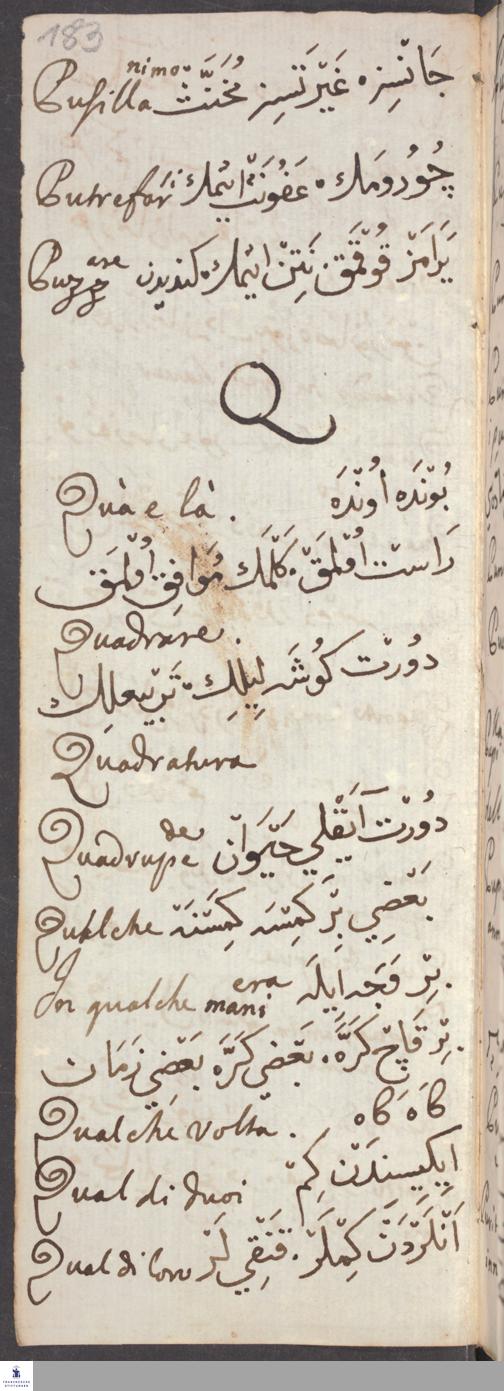 183
Pusillanimo جَانْسِزْ٠ غَيْرَتْسِز مُخَنَّثْ
Putrefar چُوُرُومَك ٠ عَفُونَتْ ايْمَك
Puzzare يَرَامَزْ قُوقْمَق نَتِنْ ايْمَك كنديدن
Q
Quà e là . بُونْدَه اُونْدَه
رَاسْت اُوْلمَقْ ٠ كَلْمَك مُوَافِق اُولْمَق
Quadrare .
دُورْت كُوشَه لِيلِك ٠ تَرْبِيعلِك
Quadratura
Quadrupede دُورْت اَيَقْلِي حَيَوَانْ
Qualche بَعْضِي بِرْ كِمْسَه كِمَسْنَه
In qualche maniera بِرْ وَجَه ايله .
بِرْ قَاچ كَرَّه ٠ بَعْضِي كَرَّه بَعْضِي زَمَان .
Qualche volta . كَاه كَاه
Qual di duoi اِيكِيسِندَنْ كِمْ
Qual di loro اَنْلَرْدَنْ كِمْلَرْ ٠ قَنْقِي لَرْ